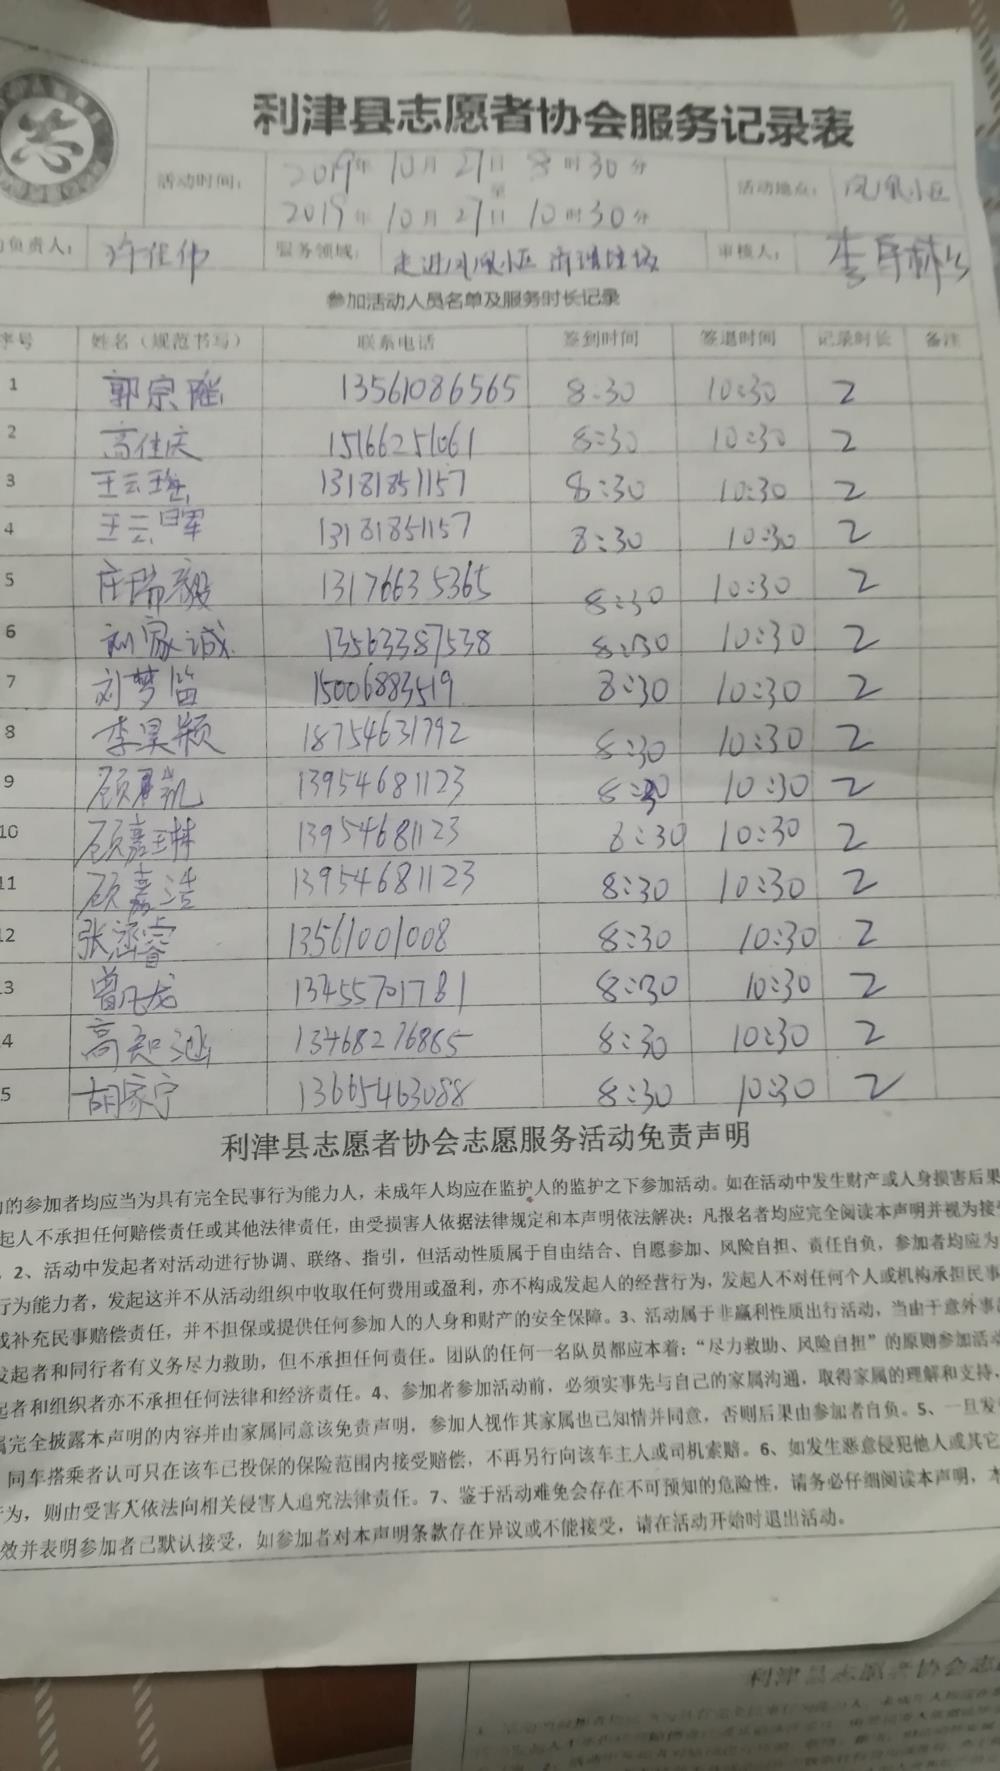 志
利津县志愿者协会服务记录表
活动时间： 2019年 10月 27日 8时30分
至
2019年 10月 27日 10时30分
活动地点： 凤凰小区
负责人： 许佳伟 服务领域： 走进凤凰小区 清理垃圾 审核人： 李
参加活动人员名单及服务时长记录
序号 姓名（规范书写） 联系电话 签到时间 签退时间 记录时长 备注
1 郭宗 13561086565 8:30 10:30 2
2 高佳庆 15166251061 8:30 10:30 2
3 王云 13181851157 8:30 10:30 2
4 王云 13181851157 8:30 10:30 2
5 庄瑞毅 13176635365 8:30 10:30 2
6 刘家诚 13563387538 8:30 10:30 2
7 刘梦笛 15006883519 8:30 10:30 2
8 李昊颖 18754631792 8:30 10:30 2
9 顾 凯 13954681123 8:30 10:30 2
10 顾嘉琳 13954681123 8:30 10:30 2
11 顾嘉浩 13954681123 8:30 10:30 2
12 张 睿 13561001008 8:30 10:30 2
3 曾凡龙 13455701781 8:30 10:30 2
4 高知涵 13468276865 8:30 10:30 2
5 胡家宁 13665463088 8:30 10:30 2
利津县志愿者协会志愿服务活动免责声明
的参加者均应当为具有完全民事行为能力人，未成年人均应在监护人的监护之下参加活动。如在活动中发生财产或人身损害后果
起人不承担任何赔偿责任或其他法律责任，由受损害人依据法律规定和本声明依法解决；凡报名者均应完全阅读本声明并视为接
。2、活动中发起者对活动进行协调、联络、指引，但活动性质属于自由结合、自愿参加、风险自担、责任自负，参加者均应为
行为能力者，发起这并不从活动组织中收取任何费用或盈利，亦不构成发起人的经营行为，发起人不对任何个人或机构承担民事
或补充民事赔偿责任，并不担保或提供任何参加人的人身和财产的安全保障。3、活动属于非赢利性质出行活动，当由于意外事
发起者和同行者有义务尽力救助，但不承担任何责任。团队的任何一名队员都应本着：“尽力救助、风险自担”的原则参加活动
起者和组织者亦不承担任何法律和经济责任。4、参加者参加活动前，必须实事先与自己的家属沟通，取得家属的理解和支持，
属完全披露本声明的内容并由家属同意该免责声明，参加人视作其家属也已知情并同意，否则后果由参加者自负。5、一旦发
同车搭乘者认可只在该车已投保的保险范围内接受赔偿，不再另行向该车主人或司机索赔。6、如发生恶意侵犯他人或其它
行为，则由受害人依法向相关侵害人追究法律责任。7、鉴于活动难免会存在不可预知的危险性，请务必仔细阅读本声明，本
效并表明参加者已默认接受，如参加者对本声明条款存在异议或不能接受，请在活动开始时退出活动。
利津县志愿者协会志